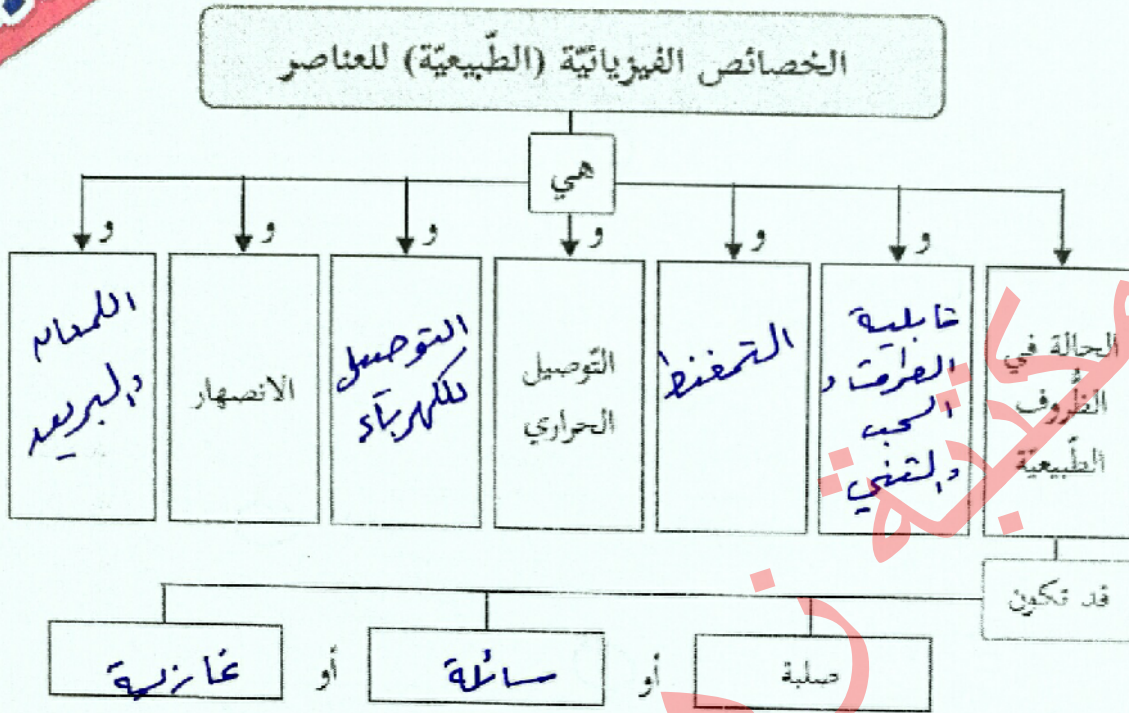 الخصائص الفيزيائيّة (الطّبيعيّة) للعناصر
هي
و
و
و
و
و
و
الحالة في
الظّروف
الطّبيعيّة
قابلية
الطرق و
السحب
والثني
التمغنط
التّوصيل
الحراري
التوصيل
للكهرباء
الانصهار
اللمعان
والبريق
قد تكون
صلبة
أو
سائلة
أو
غازية